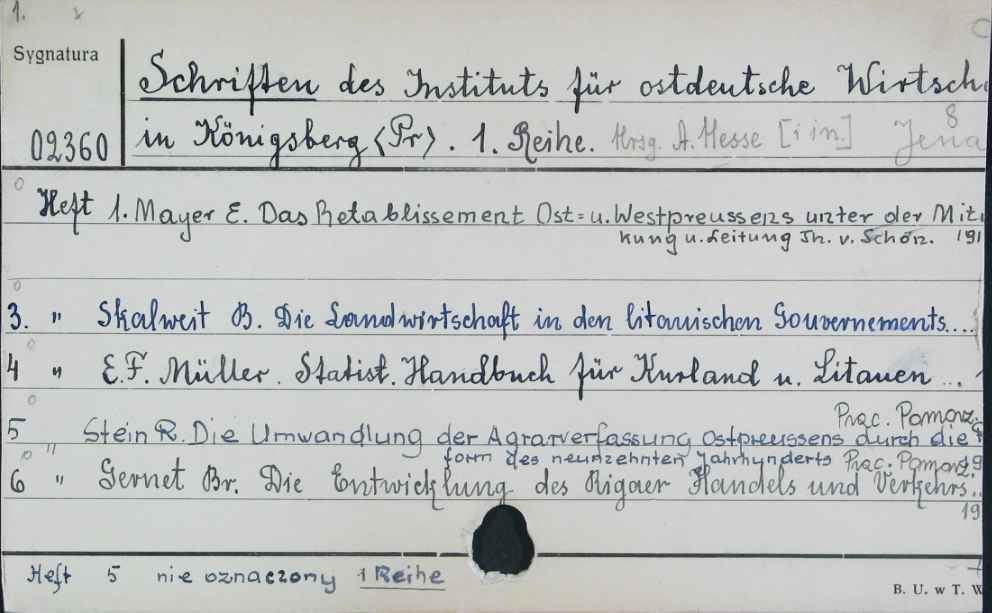 1.
Sygnatura
Schriften des Instituts für ostdeutsche Wirtsch
8
02360 in Königsberg <Pr>. 1. Reihe. Hrsg. A. Hesse [i in.] Jena
Heft 1. Mayer E. Das Retablissement Ost= u. Westpreussens unter der Mit
kung u. Leitung Th. v. Schön. 191
3. " Skalweit B. Die Landwirtschaft in den litauischen Gouvernements....
4 " E.F. Müller. Statist. Handbuch für Kurland u. Litauen ...
Prac. Pomorz.
5 " Stein R. Die Umwandlung der Agrarverfassung Ostpreussens durch die
form des neunzehnten Jahrhunderts Prac. Pomorz.
6 " Gernet Br. Die Entwicklung des Rigaer Handels und Verkehrs..
19
Heft 5 nie oznaczony 1 Reihe
B. U. w T. W